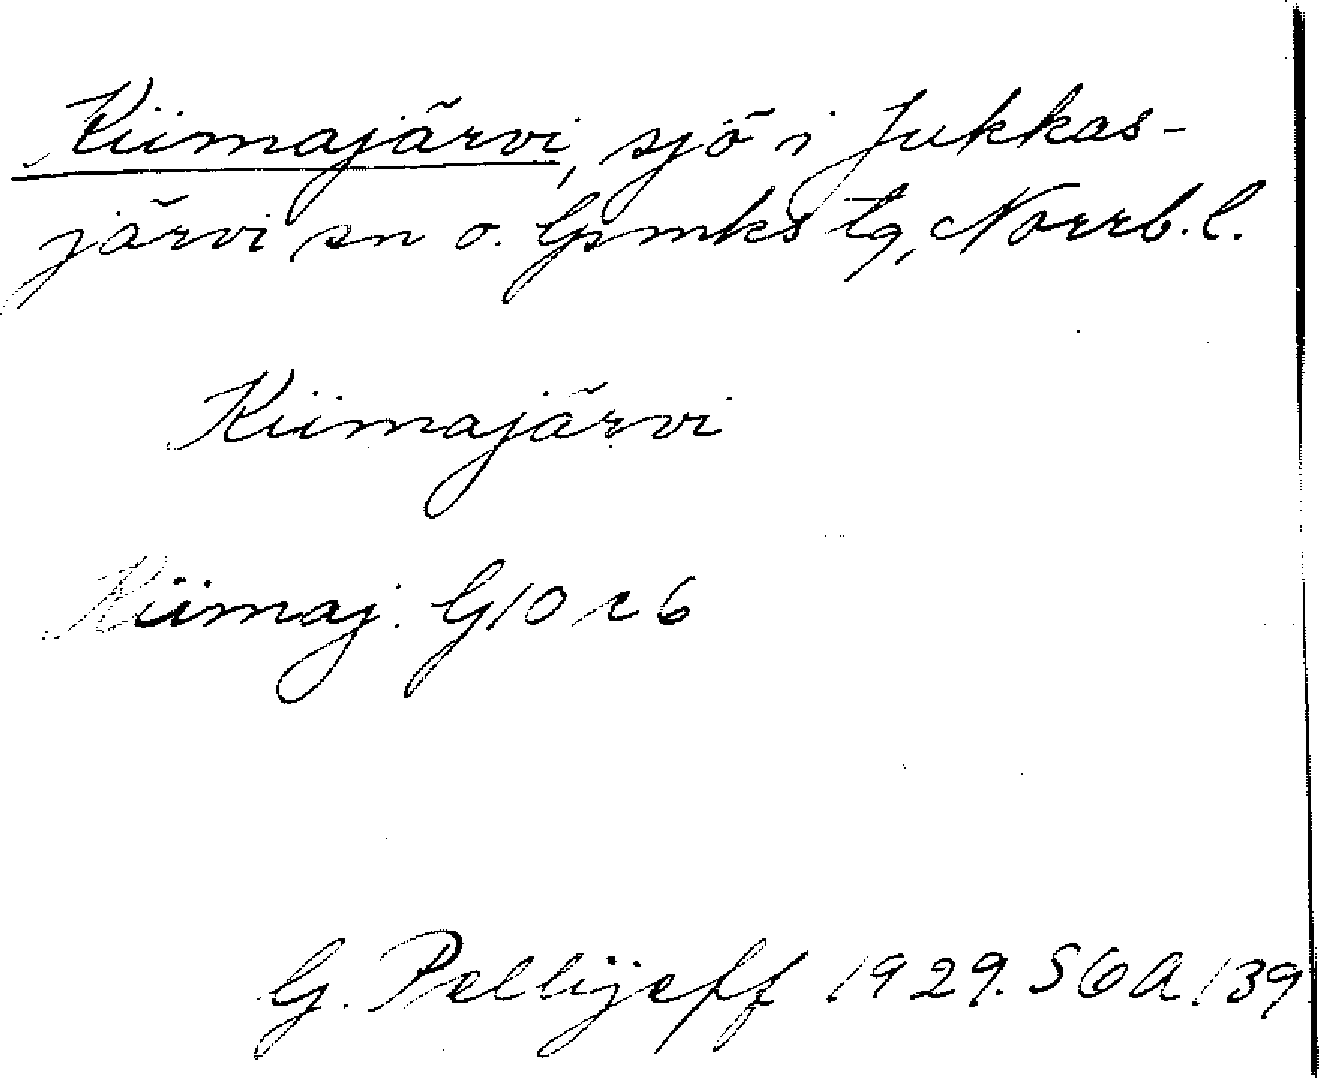 Kiimajärvi, sjö i Jukkas-
järvi sn o. Gsmks tg, Norrb. l.
Kiimajärvi
Kiimaj. G10 c6
G. Pellijeff 1929. S6A 139